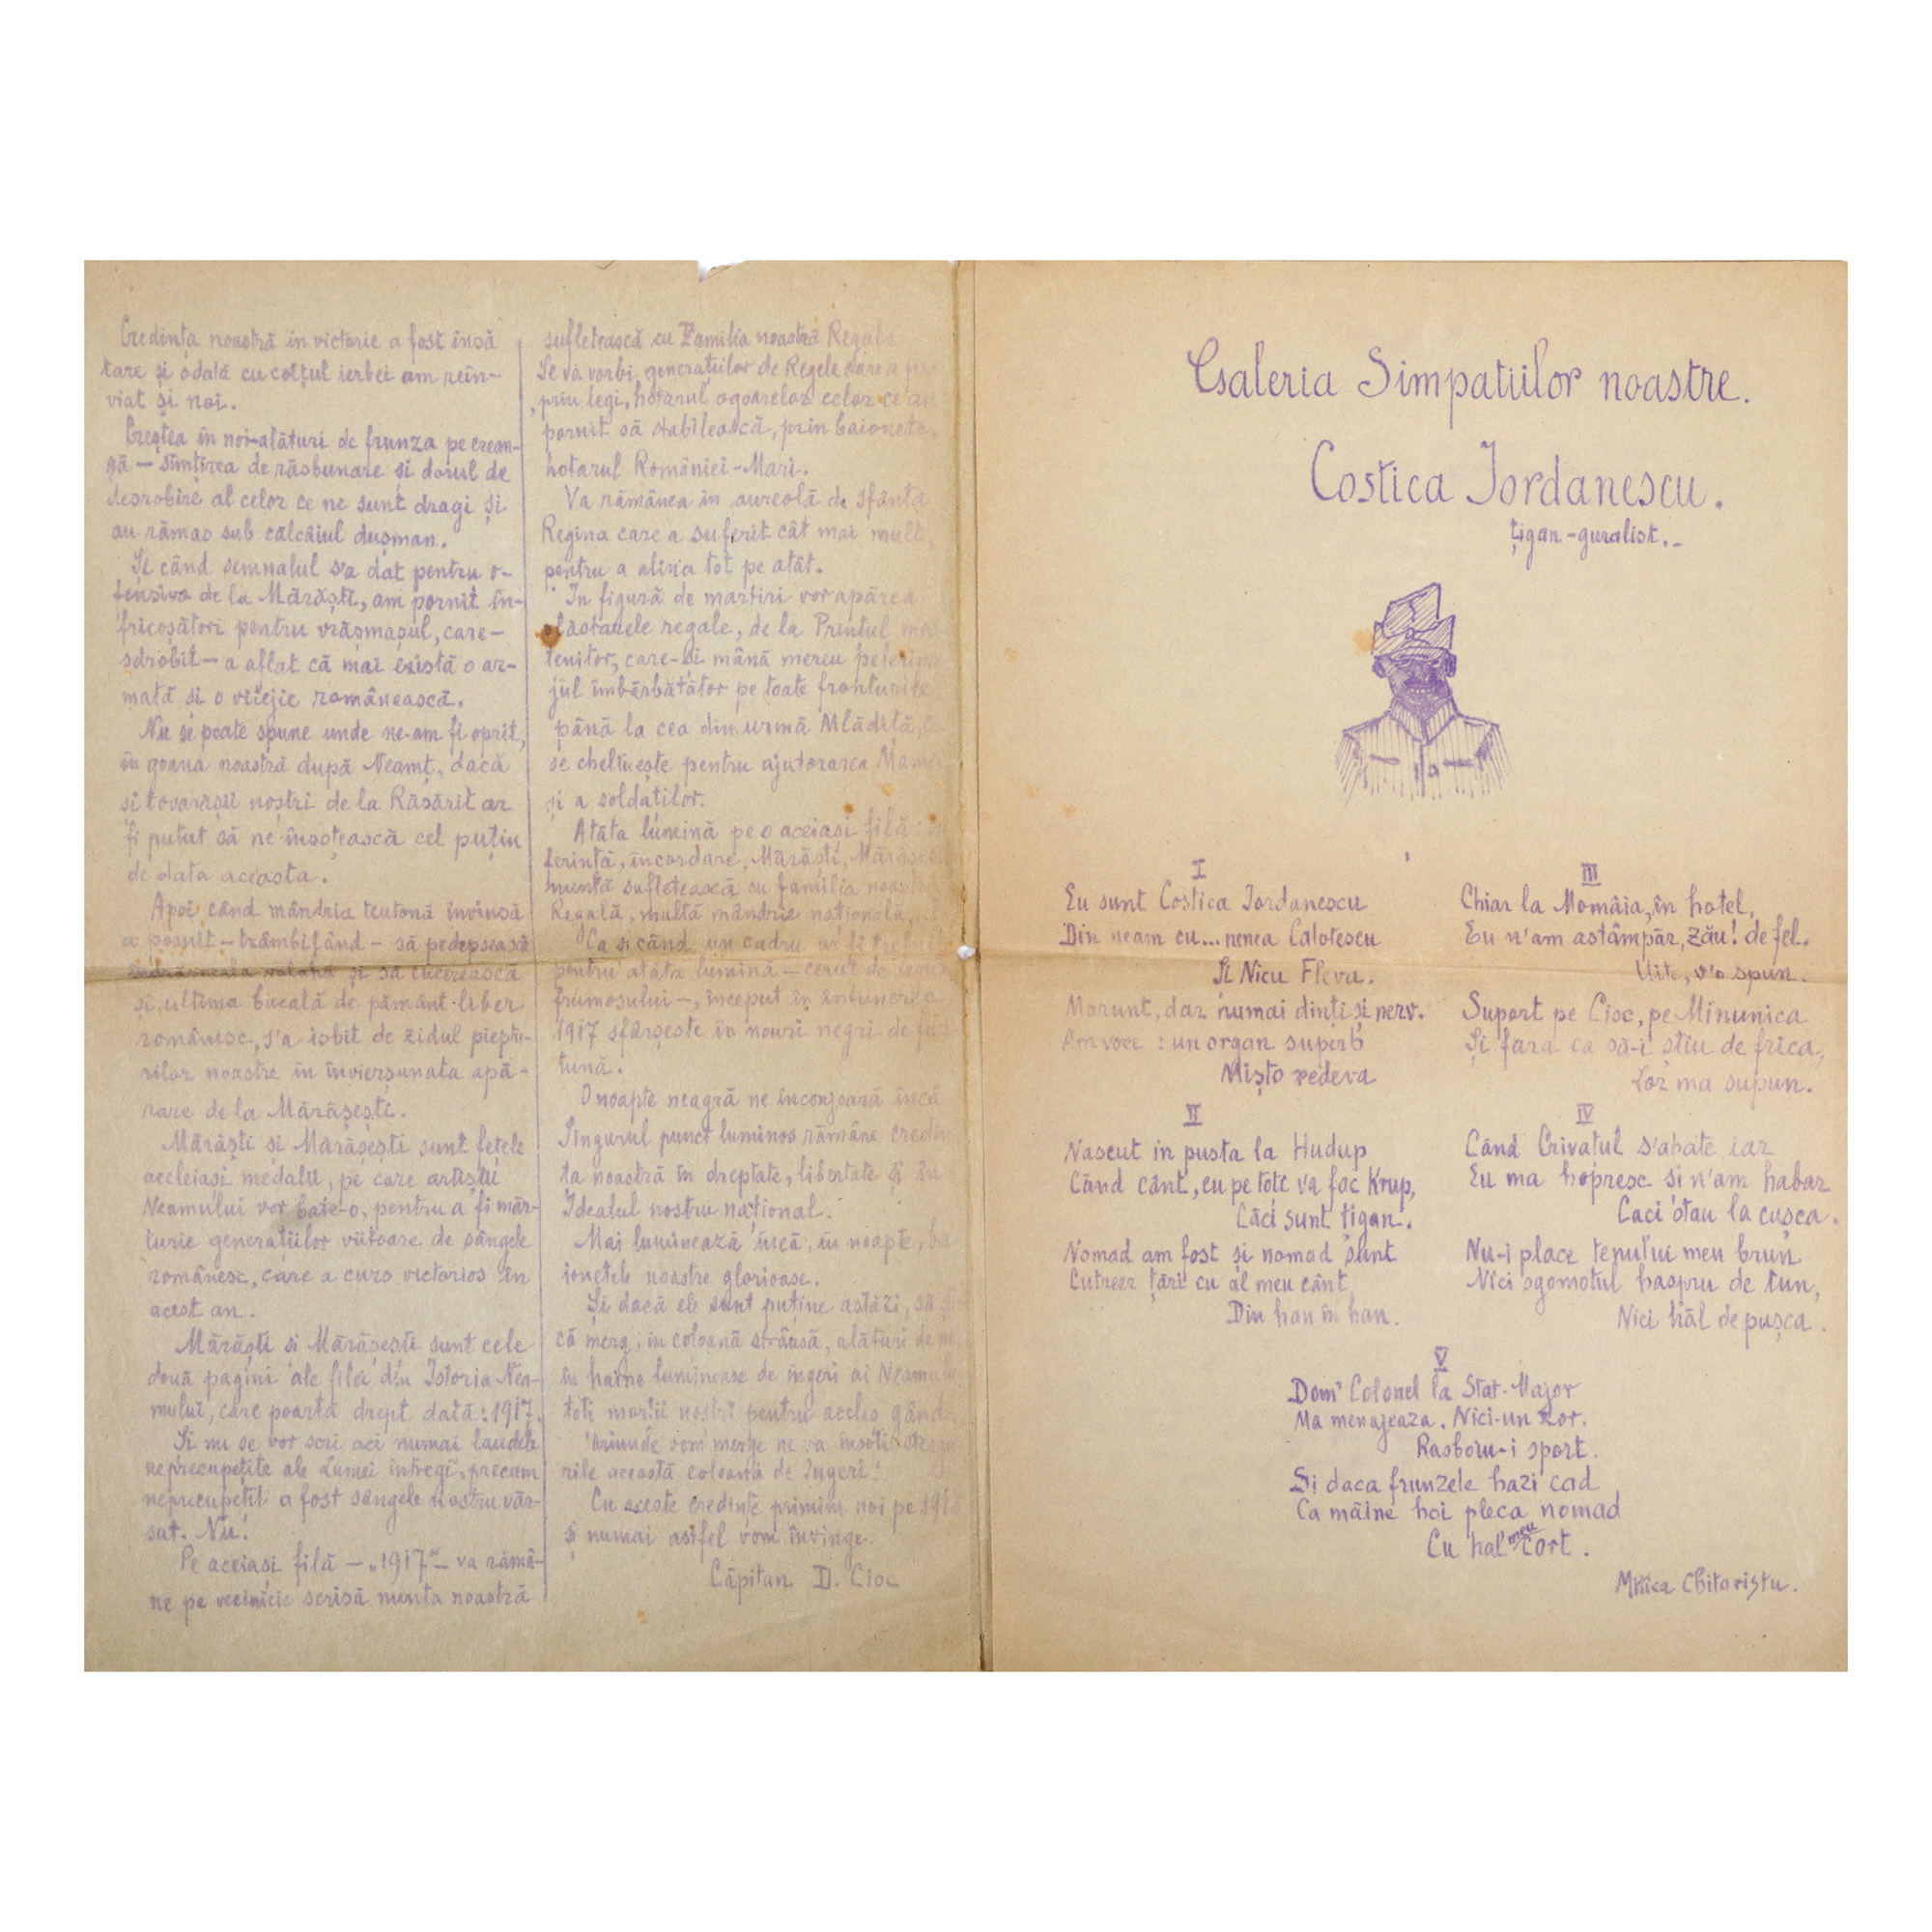 Credința noastră în victorie a fost însă
tare și odată cu colțul ierbei am reîn-
viat și noi.
Creștea în noi-alături de frunza pe cream-
gă — simțirea de răsbunare și dorul de
desrobire al celor ce ne sunt dragi și
au rămas sub călcâiul dușman.
Și când semnalul s'a dat pentru o-
fensiva de la Mărăști, am pornit în-
fricoșători pentru vrăsmașul, care-
sdrobit — a aflat că mai există o ar-
mată si o vitejie românească.
Nu se poate spune unde ne-am fi oprit,
în goana noastră după Neamț, dacă
și tovarășii noștri de la Răsărit ar
fi putut să ne însoțească cel puțin
de data aceasta.
Apoi când mândria teutonă învinsă
a pornit — trâmbițând — să pedepsească
și să cucerească
și ultima bucată de pământ liber
românesc, s'a isbit de zidul piептu-
rilor noastre în înviersunata apă-
rare de la Mărășești.
Mărăști si Mărășești sunt fețele
aceleiași medalii, pe care artiștii
Neamului vor bate-o, pentru a fi măr-
turie generațiilor viitoare de sângele
românesc, care a curs victorios în
acest an.
Mărăști si Mărășești sunt cele
două pagini ale filei din Istoria Nea-
mului, care poartă drept dată: 1917.
Si nu se vor scri aci numai laudele
neprecupețite ale Lumei întregi, precum
neprecupețit a fost sângele nostru văr-
sat. Nu!
Pe aceiași filă — „1917" — va rămâ-
ne pe vecinicie scrisă nunta noastră
sufletească cu Familia noastră Regală
Se va vorbi generațiilor de Regele care a
prin legi, hotarul ogoarelor celor ce au
pornit să stabilească, prin baionete,
hotarul României-Mari.
Va rămânea în aureolă de sfântă
Regina care a suferit cât mai mult,
pentru a alina tot pe atât.
In figură de martiri vor apărea
olăstarele regale, de la Prințul moș-
tenitor, care-și mână mereu pelerina
jul îmbărbătător pe toate fronturile
până la cea din urmă Mlădiță,
se cheltuește pentru ajutorarea
și a soldaților.
Atâta lumină pe o aceiași filă:
ferință, încordare, Mărăști, Mărășești
nuntă sufletească cu familia noastră
Regală, multă mândrie națională,
Ca si când un cadru ar fi trebuit
pentru atâta lumină — cerut de legile
frumosului —, început în întunerec,
1917 sfârșește în nouri negri de fur-
tună.
O noapte neagră ne înconjoară încă
Singurul punct luminos rămâne credin
ța noastră în dreptate, libertate și în
Idealul nostru național.
Mai luminează încă, în noapte, ba
ionetele noastre glorioase.
Și dacă ele sunt puține astăzi, să
că merg, în coloană strânsă, alături de
în haine luminoase de îngeri ai Neamului
toti morții nostri pentru acelas gând.
Oriunde vom merge ne va însoți
rile această coloană de Ingeri!
Cu aceste credințe primim noi pe 1918
și numai astfel vom învinge.
Căpitan D. Cioc
Galeria Simpatiilor noastre.
Costica Iordanescu.
țigan-guralist.-
I
Eu sunt Costica Iordanescu
Din neam cu... nenea Calotescu
Si Nicu Fleva.
Marunt, dar numai dinti și nerv.
Am voce : un organ superb
Mișto redeva
II
Nascut in pusta la Hudup
Când cânt, eu pe toti va fac Krup,
Căci sunt tigan.
Nomad am fost și nomad sunt
Cutreer țări cu al meu cânt
Din han în han.
III
Chiar la Momâia, în hotel,
Eu n'am astâmpăr, zău! de fel.
Uite, v'o spun.
Suport pe Cioc, pe Minunica
Și fara ca să-i stiu de frica,
Lor ma supun.
IV
Când Crivatul s'abate iar
Eu ma hopresc si n'am habar
Caci otau la cușca.
Nu-i place tenului meu brun
Nici sgomotul haspru de tun,
Nici hăl de pușca.
V
Dom' Colonel la Stat-Major
Ma menajeaza. Nici-un zor.
Rasboiu-i sport.
Si daca frunzele hazi cad
Ca mâine hoi pleca nomad
Cu hal' meu cort.
Mitica Chitaristu.